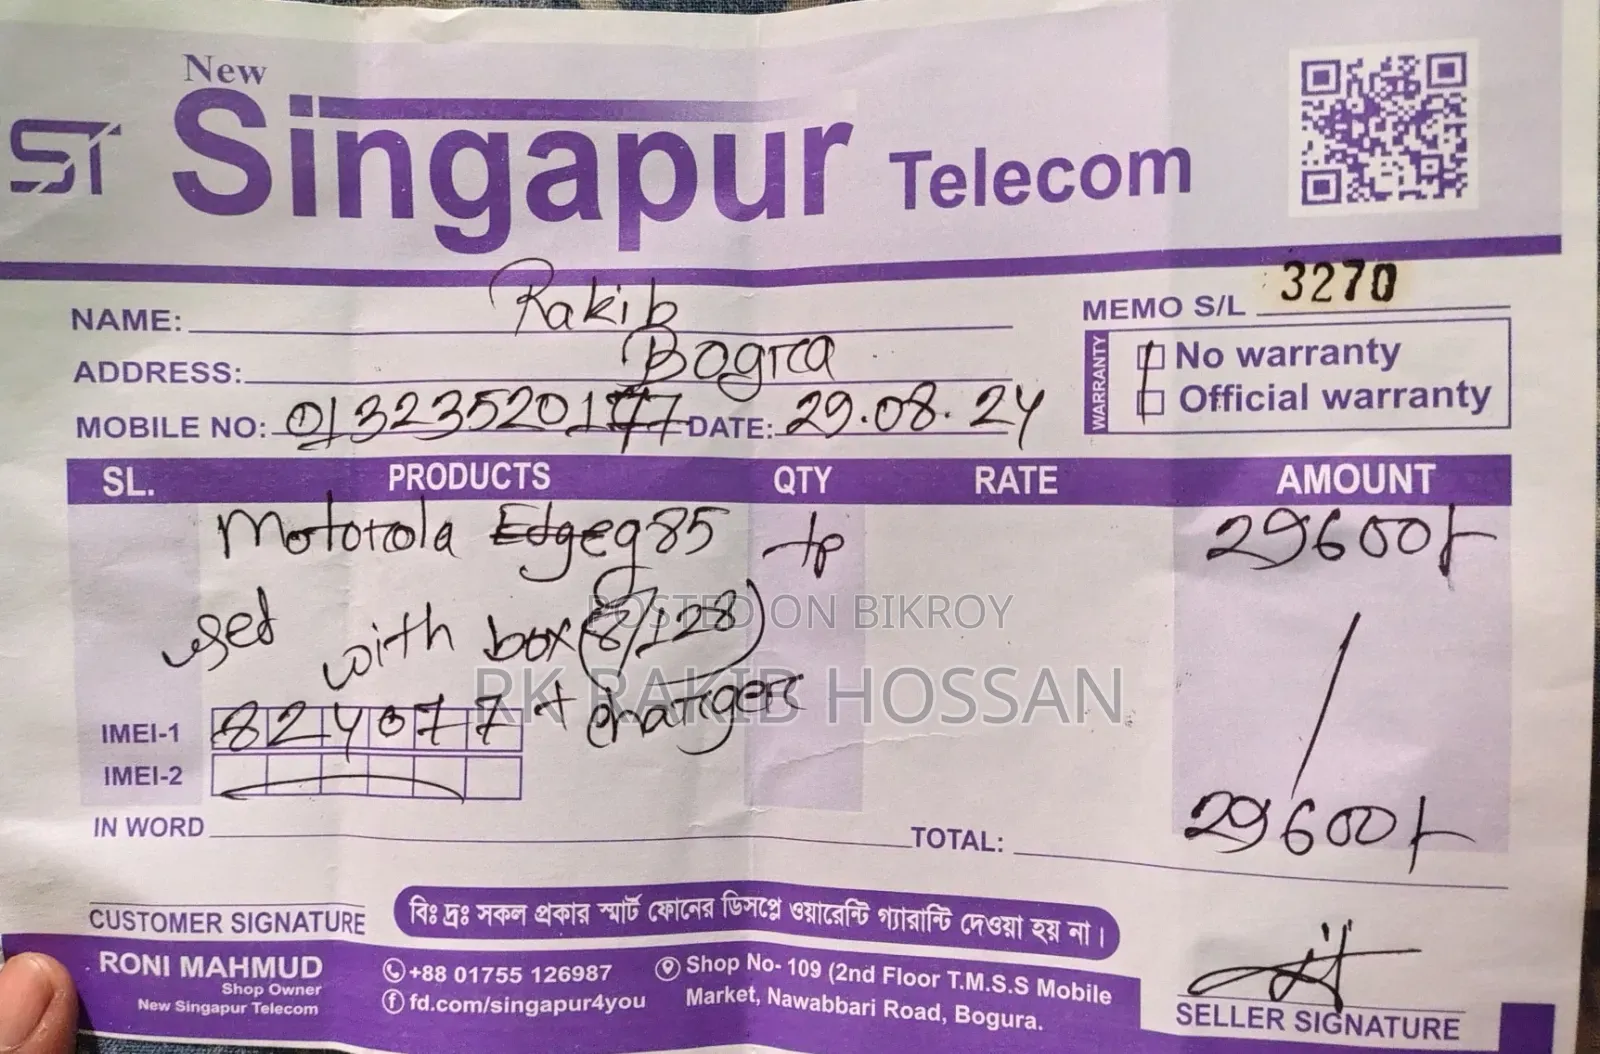 New
ST Singapur Telecom
NAME: Rakib
MEMO S/L 3270
ADDRESS: Bogra
WARRANTY
No warranty
Official warranty
MOBILE NO: DATE: 29.08.24
SL. PRODUCTS QTY RATE AMOUNT
Motorola g85 29600/-
used with box (8/128)
POSTED ON BIKROY
RK RAKIB HOSSAN
IMEI-1 824077 + charger
IMEI-2
29600/-
IN WORD TOTAL:
CUSTOMER SIGNATURE
বিঃ দ্রঃ সকল প্রকার স্মার্ট ফোনের ডিসপ্লে ওয়ারেন্টি গ্যারান্টি দেওয়া হয় না।
RONI MAHMUD
Shop Owner
New Singapur Telecom
+88 01755 126987
fd.com/singapur4you
Shop No- 109 (2nd Floor T.M.S.S Mobile
Market, Nawabbari Road, Bogura.
SELLER SIGNATURE